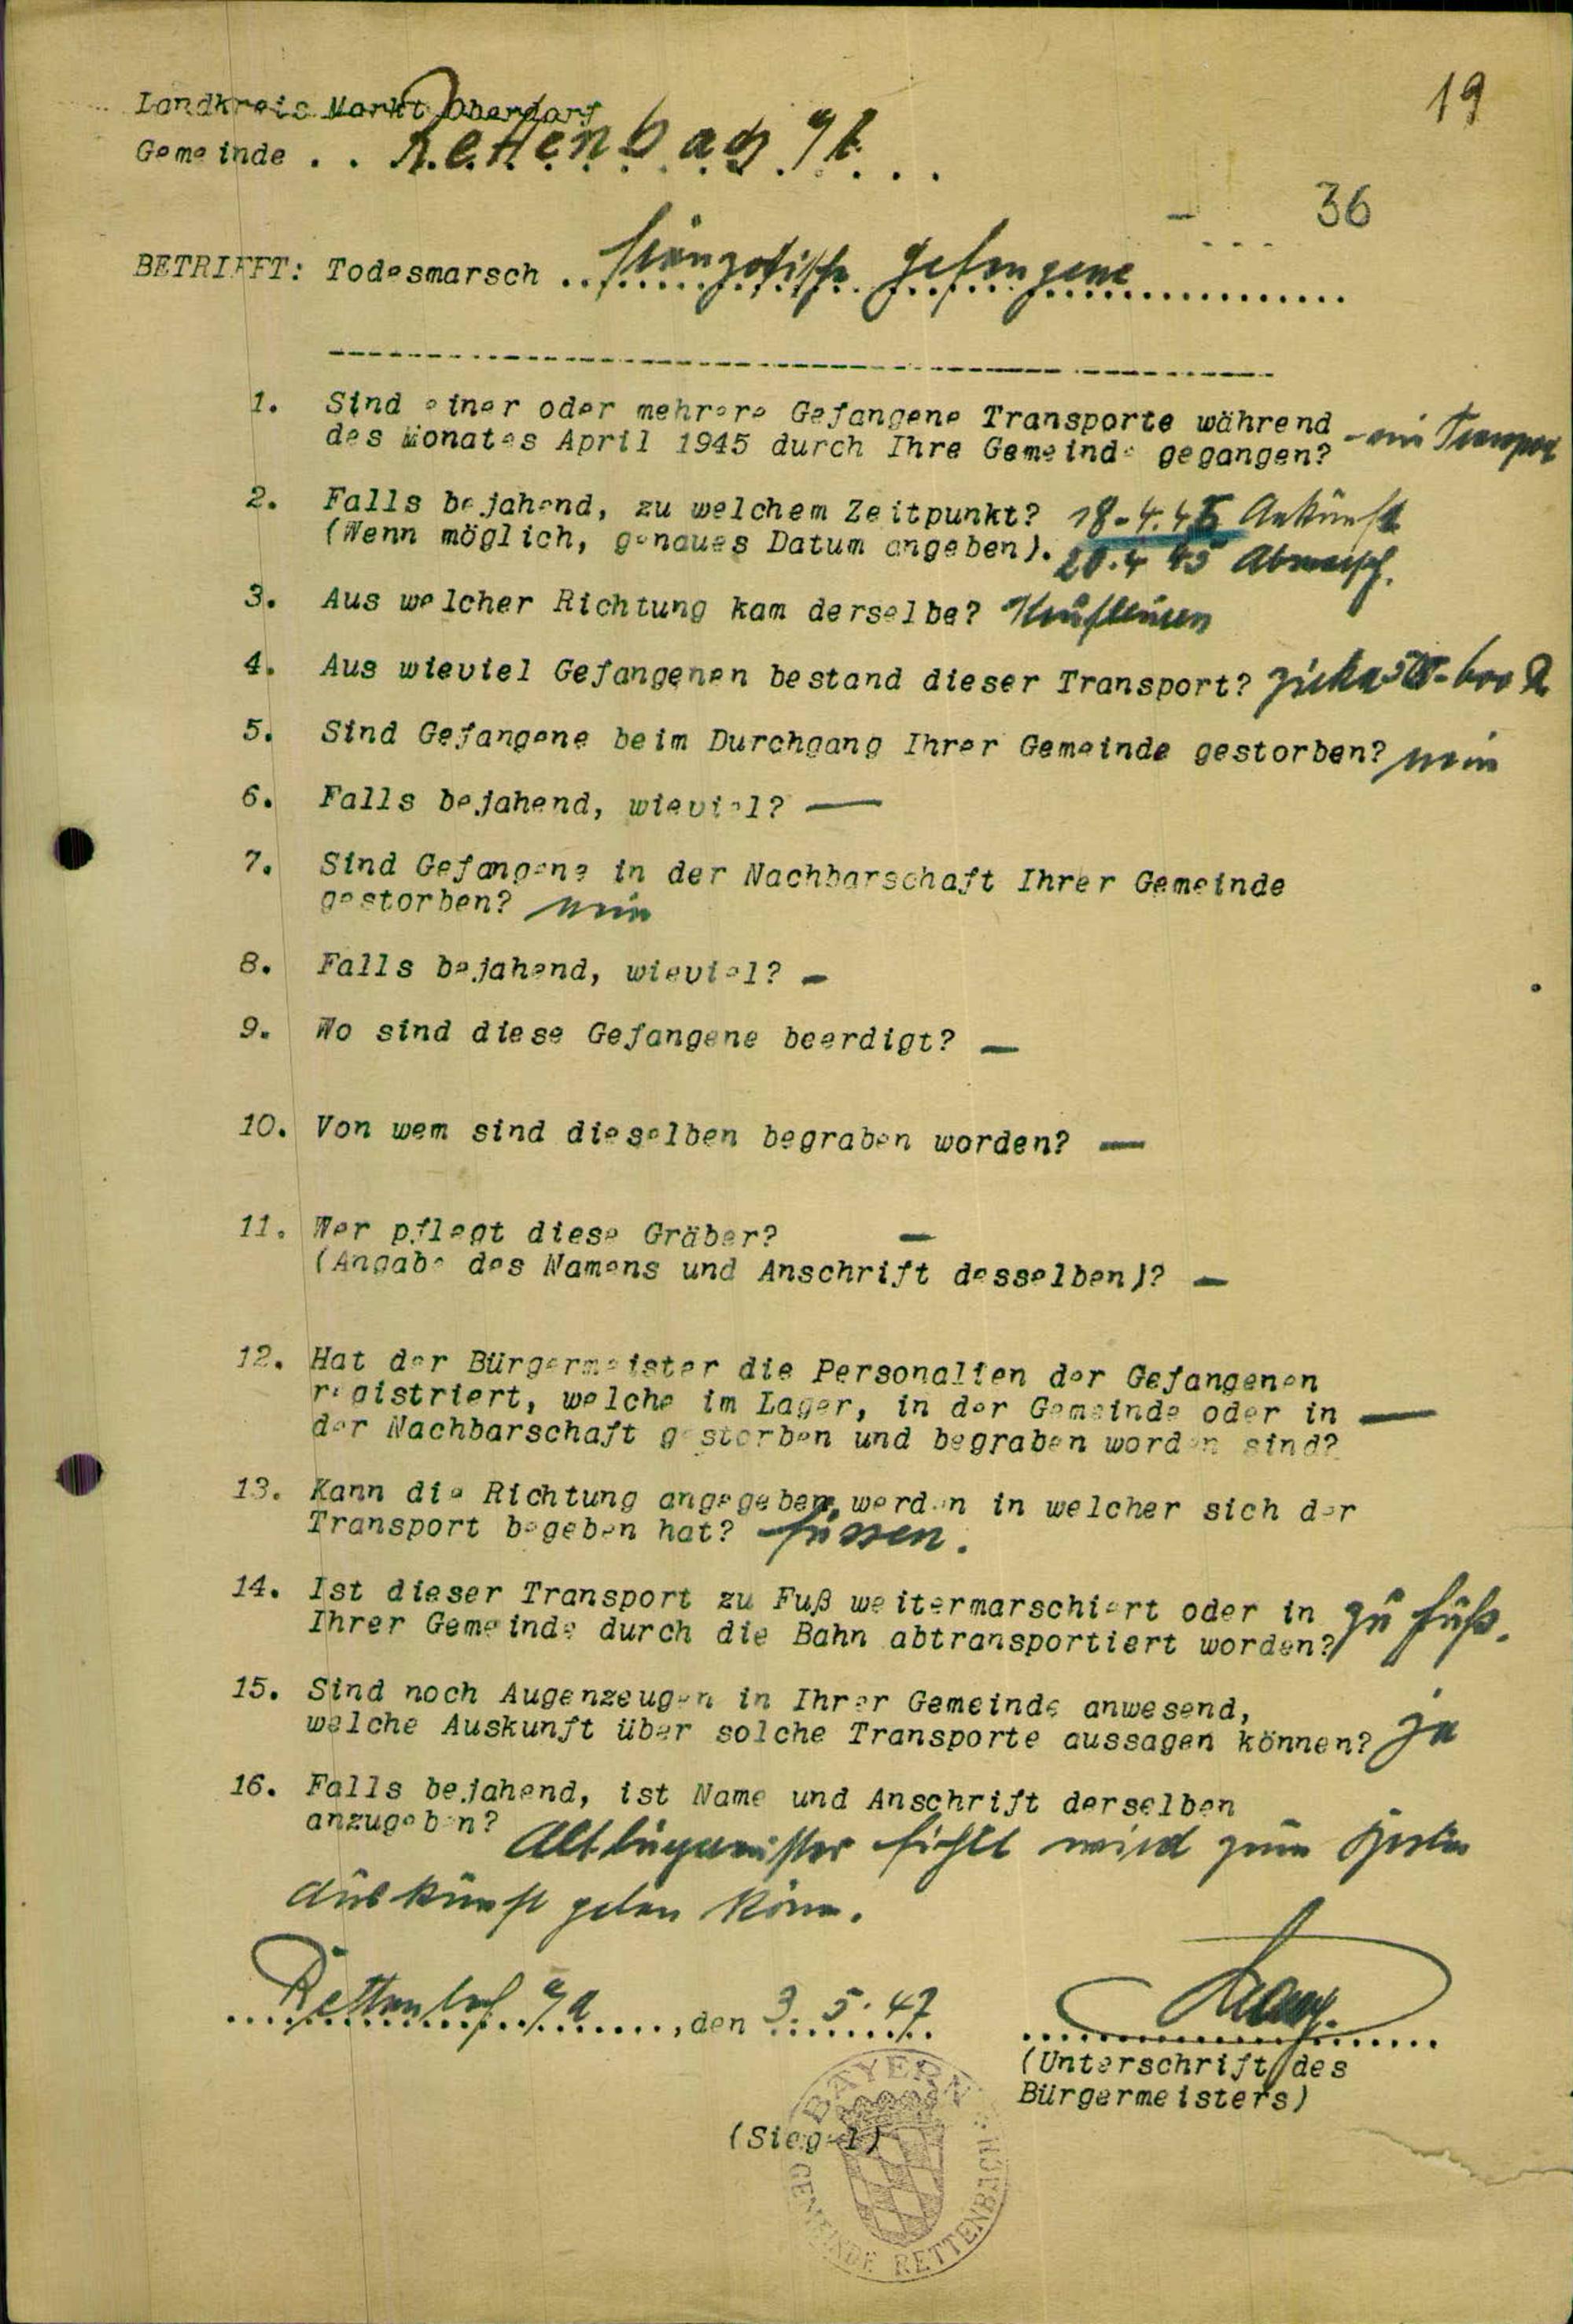 19
Landkreis Markt Oberdorf
Gemeinde . . Rettenbach
36
BETRIFFT: Todesmarsch .. französische Gefangene
1. Sind einer oder mehrere Gefangene Transporte während
des Monates April 1945 durch Ihre Gemeinde gegangen? - ein Transport
2. Falls bejahend, zu welchem Zeitpunkt? 18.4.45 Ankunft
(Wenn möglich, genaues Datum angeben). 20.4 45 Abmarsch.
3. Aus welcher Richtung kam derselbe? Kaufbeuren
4. Aus wieviel Gefangenen bestand dieser Transport? zirka 500-600
5. Sind Gefangene beim Durchgang Ihrer Gemeinde gestorben? nein
6. Falls bejahend, wieviel? —
7. Sind Gefangene in der Nachbarschaft Ihrer Gemeinde
gestorben? nein
8. Falls bejahend, wieviel? —
9. Wo sind diese Gefangene beerdigt? —
10. Von wem sind dieselben begraben worden? —
11. Wer pflegt diese Gräber? —
(Angabe des Namens und Anschrift desselben)? —
12. Hat der Bürgermeister die Personalien der Gefangenen
registriert, welche im Lager, in der Gemeinde oder in —
der Nachbarschaft gestorben und begraben worden sind?
13. Kann die Richtung angegeben werden in welcher sich der
Transport begeben hat? Füssen.
14. Ist dieser Transport zu Fuß weitermarschiert oder in
Ihrer Gemeinde durch die Bahn abtransportiert worden? zu Fuß.
15. Sind noch Augenzeugen in Ihrer Gemeinde anwesend,
welche Auskunft über solche Transporte aussagen können? ja
16. Falls bejahend, ist Name und Anschrift derselben
anzugeben? Altbürgermeister wird zum
Auskunft geben könn.
Rettenbach, den 3. 5. 47
(Unterschrift des
Bürgermeisters)
(Siegel)
BAYERN
GEMEINDE RETTENBACH